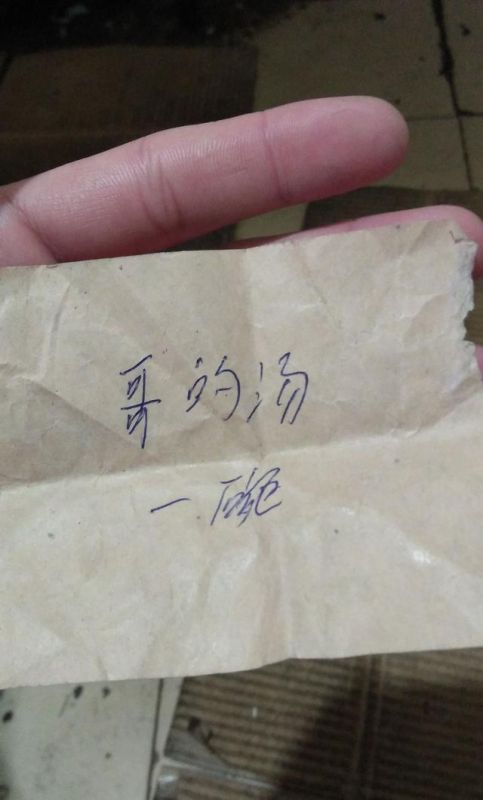 哥的汤
一碗